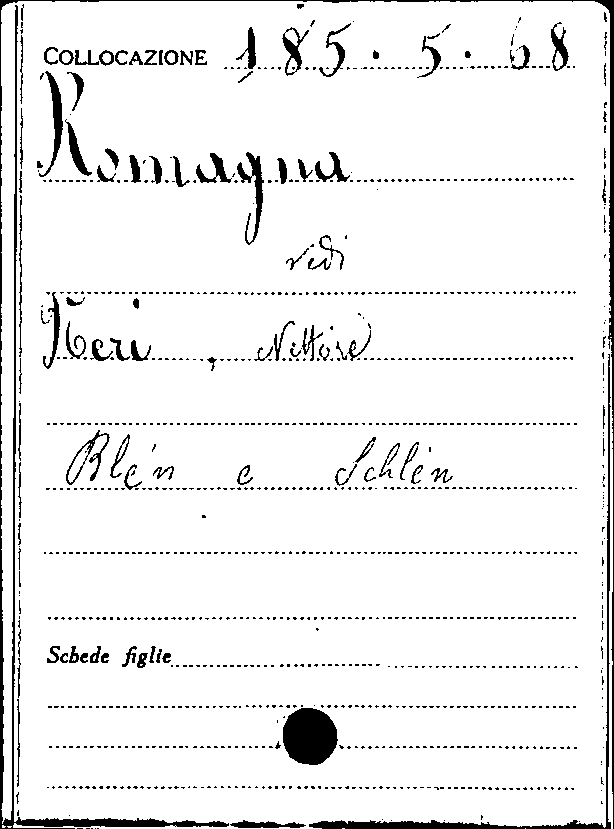 COLLOCAZIONE 185.5.68
Romagna
vedi
Neri, Nettore
Blén e Schlén
Schede figlie